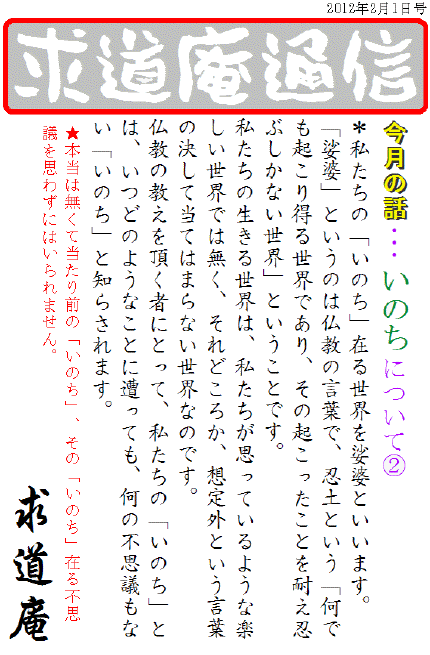 2012年2月1日号
求道庵通信
今月の話…いのちについて②
＊私たちの「いのち」在る世界を娑婆といいます。
「娑婆」というのは仏教の言葉で、忍土という「何で
も起こり得る世界であり、その起こったことを耐え忍
ぶしかない世界」ということです。
私たちの生きる世界は、私たちが思っているような楽
しい世界では無く、それどころか、想定外という言葉
の決して当てはまらない世界なのです。
仏教の教えを頂く者にとって、私たちの「いのち」と
は、いつどのようなことに遭っても、何の不思議もな
い「いのち」と知らされます。
★本当は無くて当たり前の「いのち」、その「いのち」在る不思
議を思わずにはいられません。
求道庵